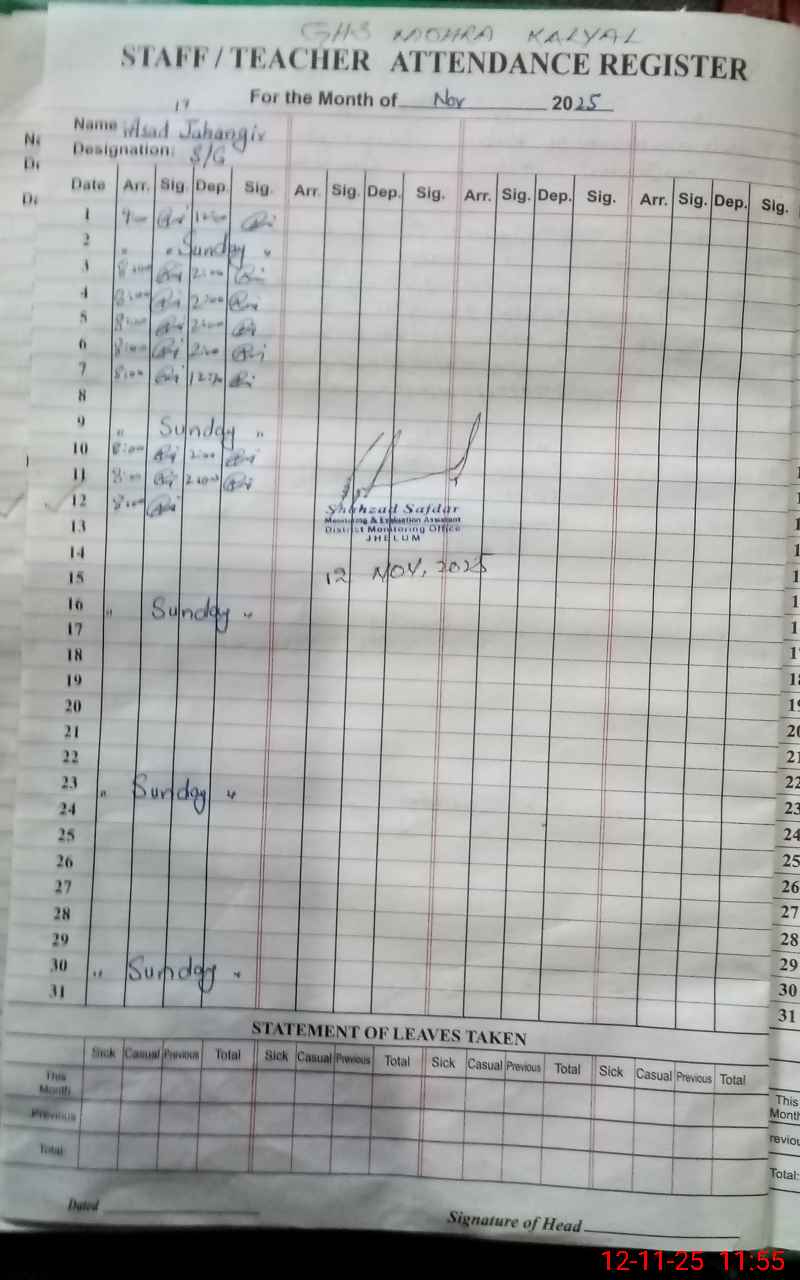 GHS MOHRA KALYAL
STAFF / TEACHER ATTENDANCE REGISTER
For the Month of Nov 2025
17
Name Asad Jahangir
Designation: S/G
Date Arr. Sig. Dep. Sig. Arr. Sig. Dep. Sig. Arr. Sig. Dep. Sig. Arr. Sig. Dep. Sig.
1 9:00 12:00
2 " " Sunday "
3 8:00 2:00
4 8:00 2:00
5 8:00 2:00
6 8:00 2:00
7 8:00
8
9 " Sunday "
10 8:00 2:00
11 8:00 2:00
12 8:00
Shahzad Safdar
Monitoring & Evaluation Assistant
District Monitoring Office
JHELUM
13
14
15
12 NOV, 2025
16 " Sunday "
17
18
19
20
21
22
23 " Sunday "
24
25
26
27
28
29
30 " Sunday "
31
STATEMENT OF LEAVES TAKEN
Sick Casual Previous Total Sick Casual Previous Total Sick Casual Previous Total Sick Casual Previous Total
This Month
Previous
Total:
Dated
Signature of Head
22
23
24
25
26
27
28
29
30
31
This
Month
Total:
12-11-25 11:55